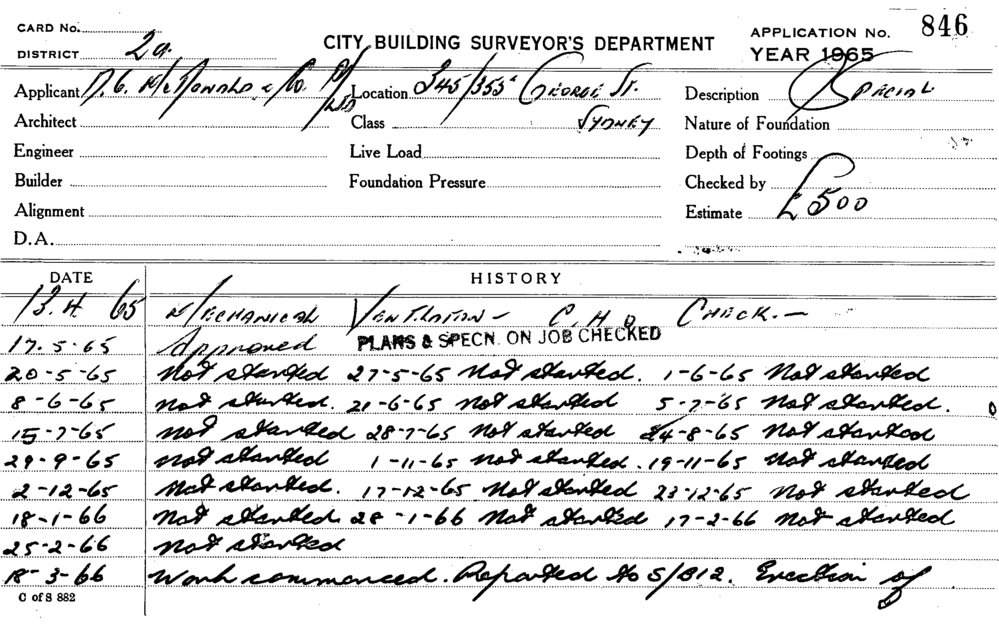 CARD No.
DISTRICT 2a.
CITY BUILDING SURVEYOR'S DEPARTMENT
APPLICATION No. 846
YEAR 1965
Applicant D. G. McDonald & Co. P/L Ltd Location 345/355 George St. Description Special
Architect Class Sydney Nature of Foundation
Engineer Live Load Depth of Footings
Builder Foundation Pressure Checked by
Alignment Estimate £500
D.A.
DATE HISTORY
13.4.65 Mechanical Ventilation - C.H.O Check. -
17.5.65 Approved PLANS & SPECN. ON JOB CHECKED
20-5-65 Not started 27-5-65 Not started. 1-6-65 Not started
8-6-65 Not started. 21-6-65 Not started 5-7-65 Not started.
15-7-65 Not started 28-7-65 Not started 24-8-65 Not started
29-9-65 Not started 1-11-65 Not started. 19-11-65 Not started
2-12-65 Not started. 17-12-65 Not started 23-12-65 Not started
18-1-66 Not started 28-1-66 Not started 17-2-66 Not started
25-2-66 Not started
18-3-66 Work commenced. Reported to S/B12. Erection of
C of S 882